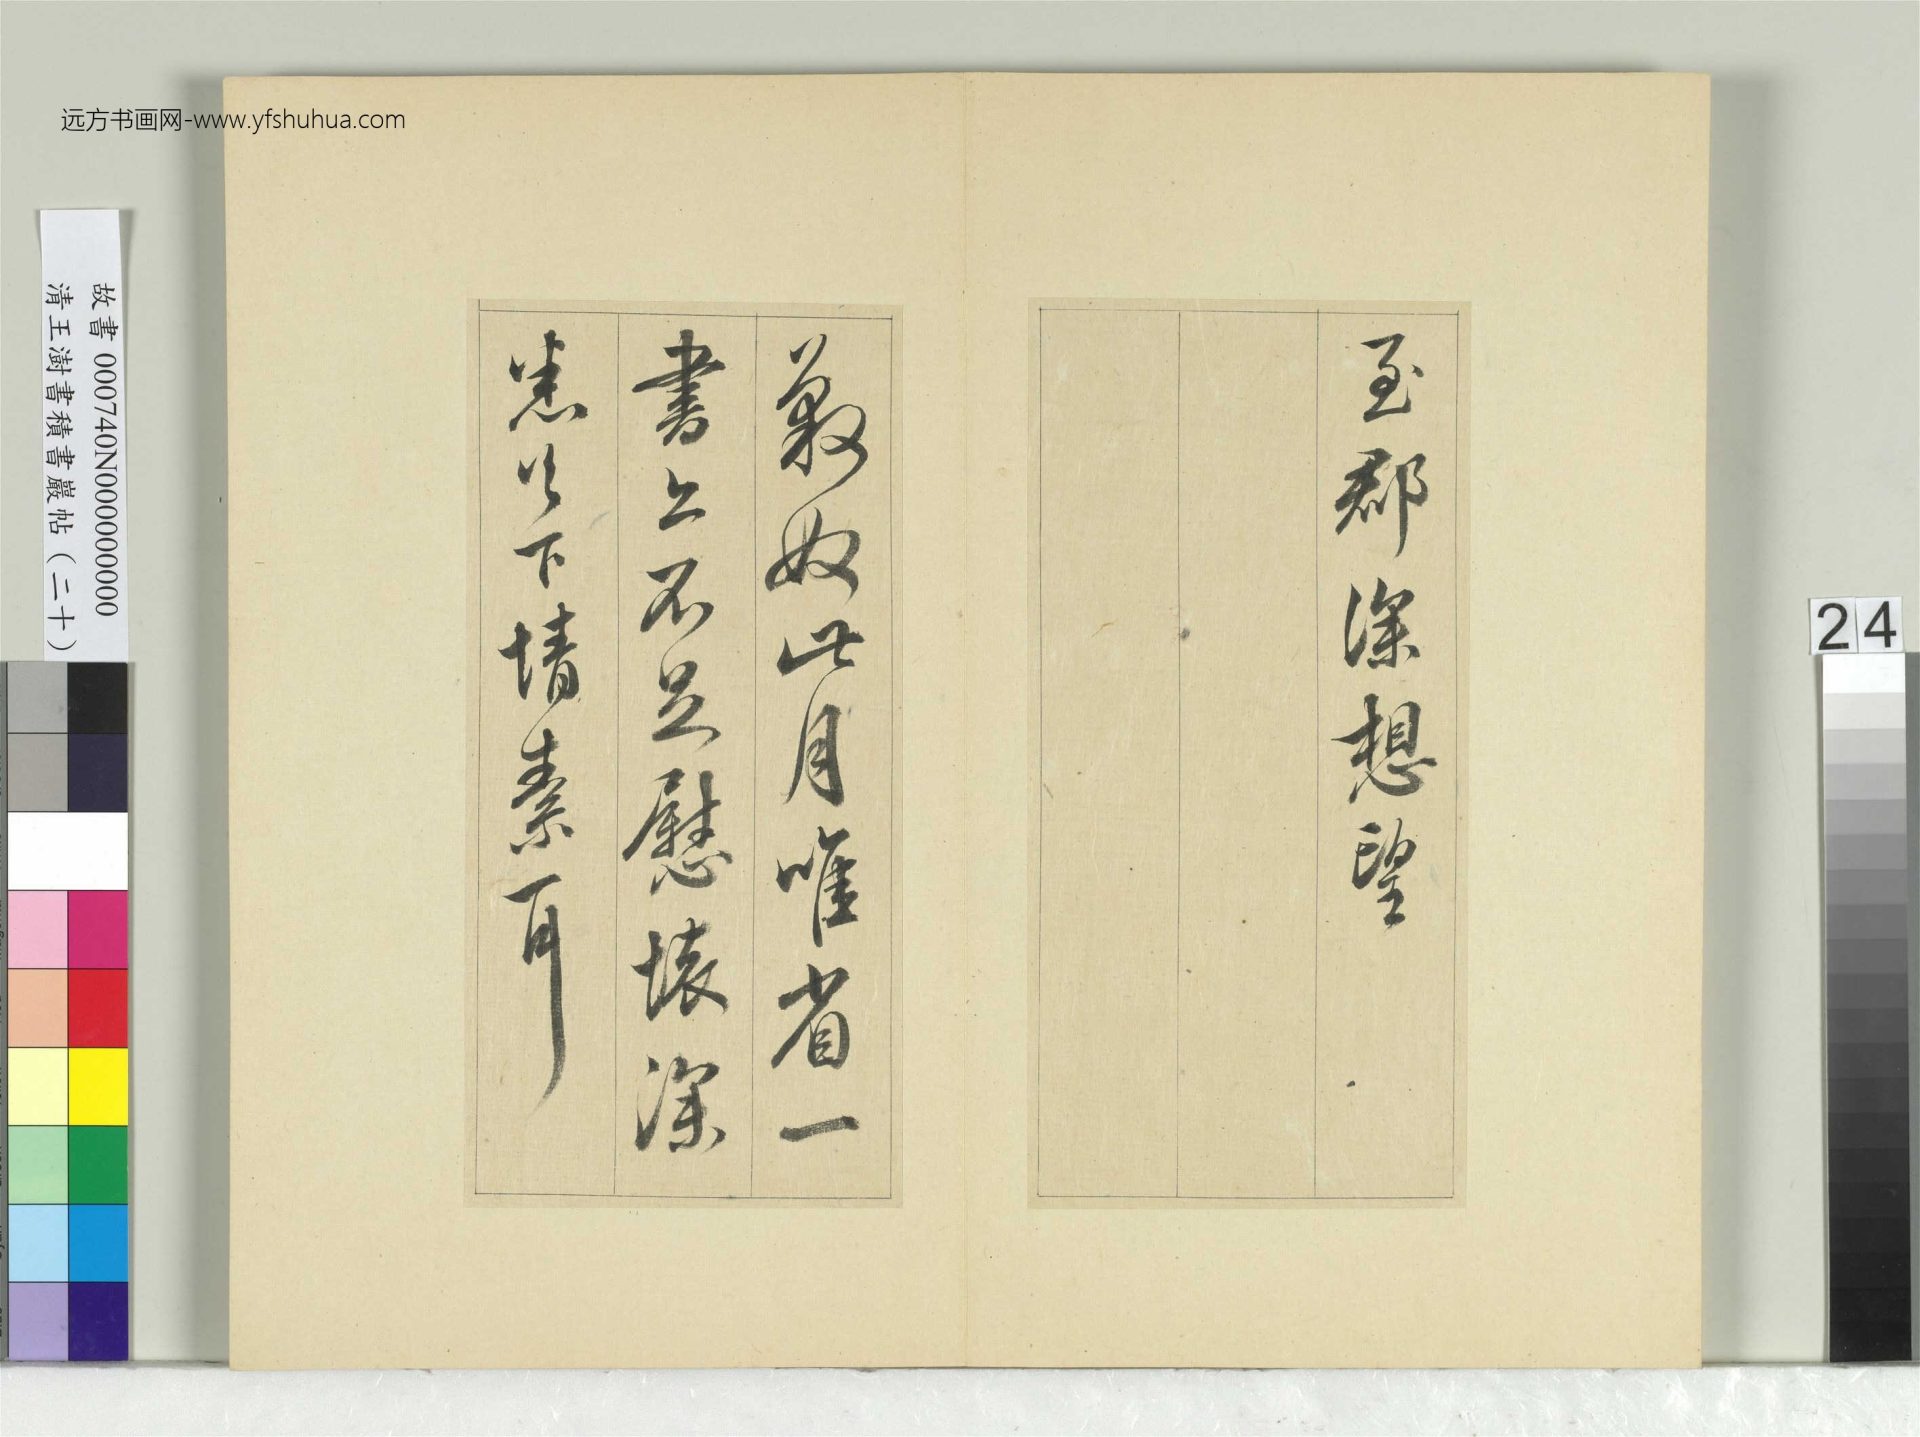 远方书画网-www.yfshuhua.com
故書 000740N000000000
清王澍書積書巖帖(二十)
24
至郡深想望
奴此月唯省一
書不足慰懷深
悉以下情素耳